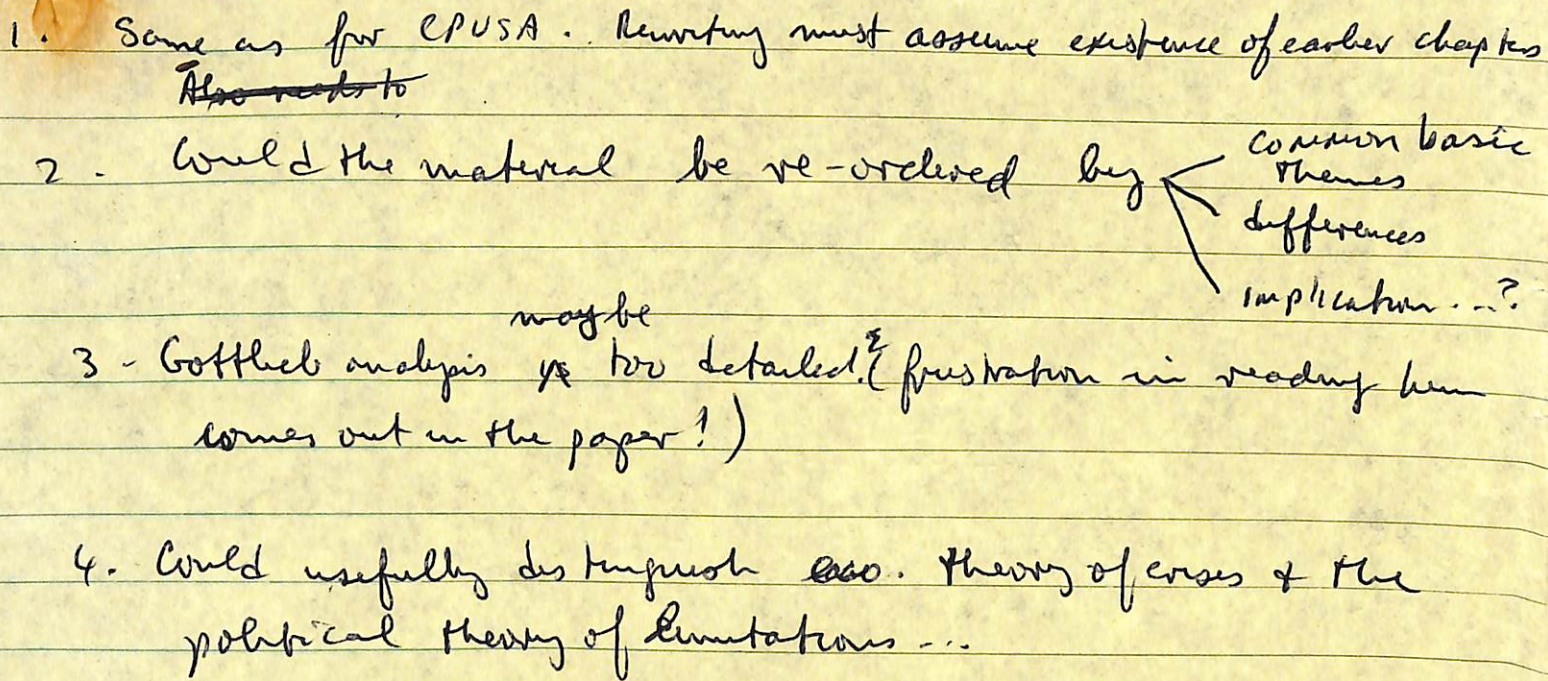 1. Same as for CPUSA. Rewriting must assume existence of earlier chapters
Also needs to
2. Could the material be re-ordered by
common basic
themes
differences
implication...?
maybe
3 - Gottlieb analysis too detailed. (frustration in reading him
comes out in the paper!)
4. Could usefully distinguish eco. theory of crises & the
political theory of limitations...